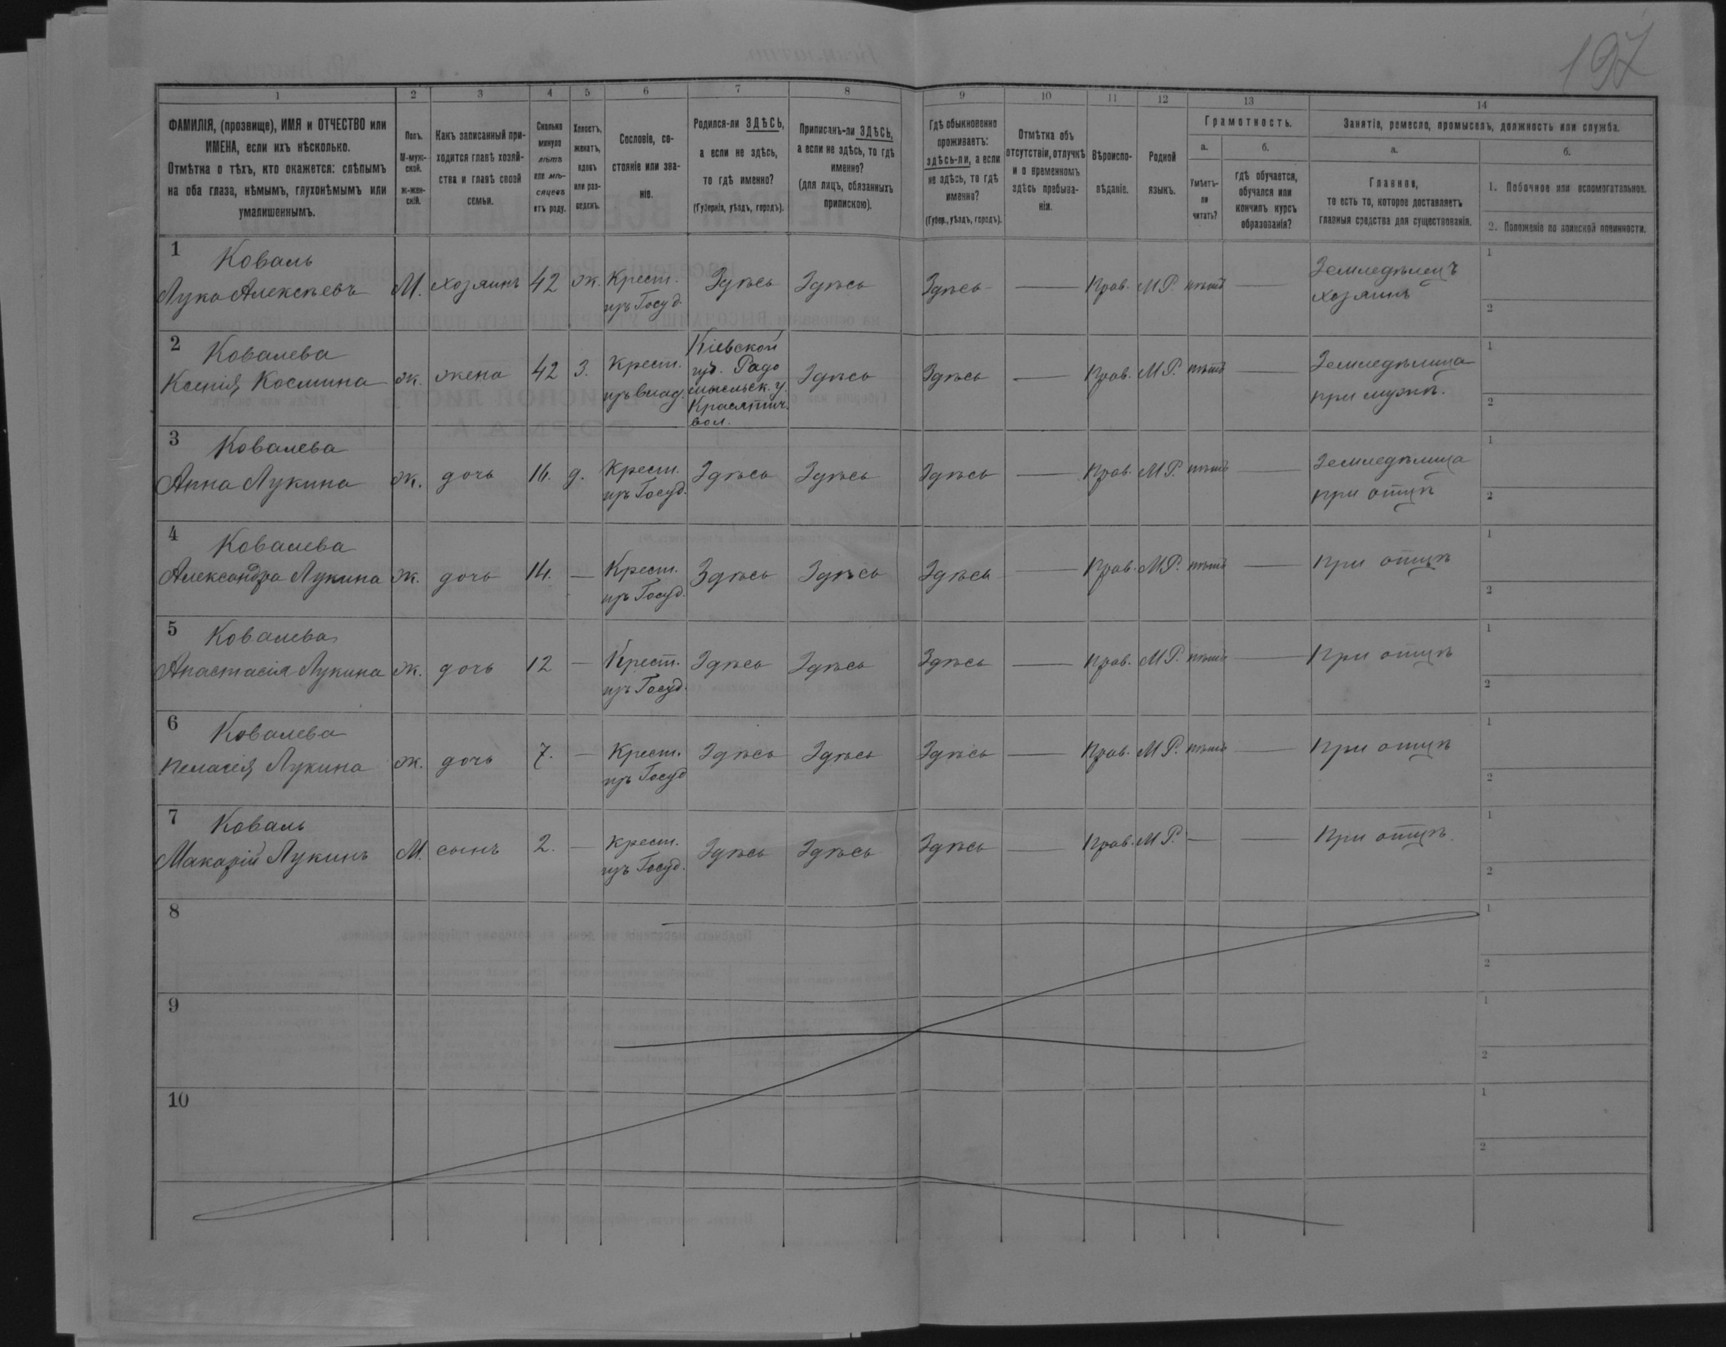 197
1
2
3
4
5
6
7
8
9
10
11
12
13
14
ФАМИЛІЯ, (прозвище), ИМЯ и ОТЧЕСТВО или
ИМЕНА, если ихъ нѣсколько.
Отмѣтка о тѣхъ, кто окажется: слѣпымъ
на оба глаза, нѣмымъ, глухонѣмымъ или
умалишеннымъ.
Полъ.
М-муж-
ской.
ж-жен-
скій.
Какъ записанный при-
ходится главѣ хозяй-
ства и главѣ своей
семьи.
Сколько
минуло
лѣтъ
или мѣ-
сяцевъ
отъ роду.
Холостъ,
женатъ,
вдовъ
или раз-
веденъ.
Сословіе, со-
стояніе или зва-
ніе.
Родился-ли ЗДѢСЬ,
а если не здѣсь,
то гдѣ именно?
(Губернія, уѣздъ, городъ).
Приписанъ-ли ЗДѢСЬ,
а если не здѣсь, то гдѣ
именно?
(для лицъ, обязанныхъ
припискою).
Гдѣ обыкновенно
проживаетъ:
здѣсь-ли, а если
не здѣсь, то гдѣ
именно?
(Губер., уѣздъ, городъ).
Отмѣтка объ
отсутствіи, отлучкѣ
и о временномъ
здѣсь пребыва-
ніи.
Вѣроиспо-
вѣданіе.
Родной
языкъ.
Грамотность.
а.
Умѣетъ-
ли
читать?
б.
гдѣ обучается,
обучался или
кончилъ курсъ
образованія?
Занятіе, ремесло, промыселъ, должность или служба.
а.
Главное,
то есть то, которое доставляетъ
главныя средства для существованія.
б.
1. Побочное или вспомогательное.
2. Положеніе по воинской повинности.
1
Коваль
Лука Алексѣевъ
М.
хозяинъ
42
ж.
Крест.
изъ Госуд.
Здѣсь
Здѣсь
Здѣсь
—
Прав.
М.Р.
нѣтъ
—
Земледѣлецъ
хозяинъ
1
2
2
Ковалева
Ксенія Космина
ж.
жена
42
З.
Крест.
изъ влад.
Кіевской
гу. Радо
мысльск. у
Краятич.
вол.
Здѣсь
Здѣсь
—
Прав.
М.Р.
нѣтъ
Земледѣлица
при мужѣ.
1
2
3
Ковалева
Анна Лукина
ж.
дочь
16.
д.
Крест.
изъ Госуд.
Здѣсь
Здѣсь
Здѣсь
—
Прав.
М.Р.
нѣтъ
—
Земледѣлица
при отцѣ
1
2
4
Ковалева
Александра Лукина
ж.
дочь
14.
—
Крест.
изъ Госуд.
Здѣсь
Здѣсь
Здѣсь
—
Прав.
М.Р.
нѣтъ
—
При отцѣ
1
2
5
Ковалева
Анастасія Лукина
ж.
дочь
12
—
Крест.
изъ Госуд.
Здѣсь
Здѣсь
Здѣсь
—
Прав.
М.Р.
нѣтъ
—
При отцѣ
1
2
6
Ковалева
Пелагея Лукина
ж.
дочь
7.
—
Крест.
изъ Госуд
Здѣсь
Здѣсь
Здѣсь
—
Прав.
М.Р.
нѣтъ
—
При отцѣ
1
2
7
Коваль
Макарій Лукинъ
М.
сынъ
2.
—
Крест.
изъ Госуд.
Здѣсь
Здѣсь
Здѣсь
—
Прав.
М.Р.
—
—
При отцѣ.
1
2
8
1
2
9
1
2
10
1
2